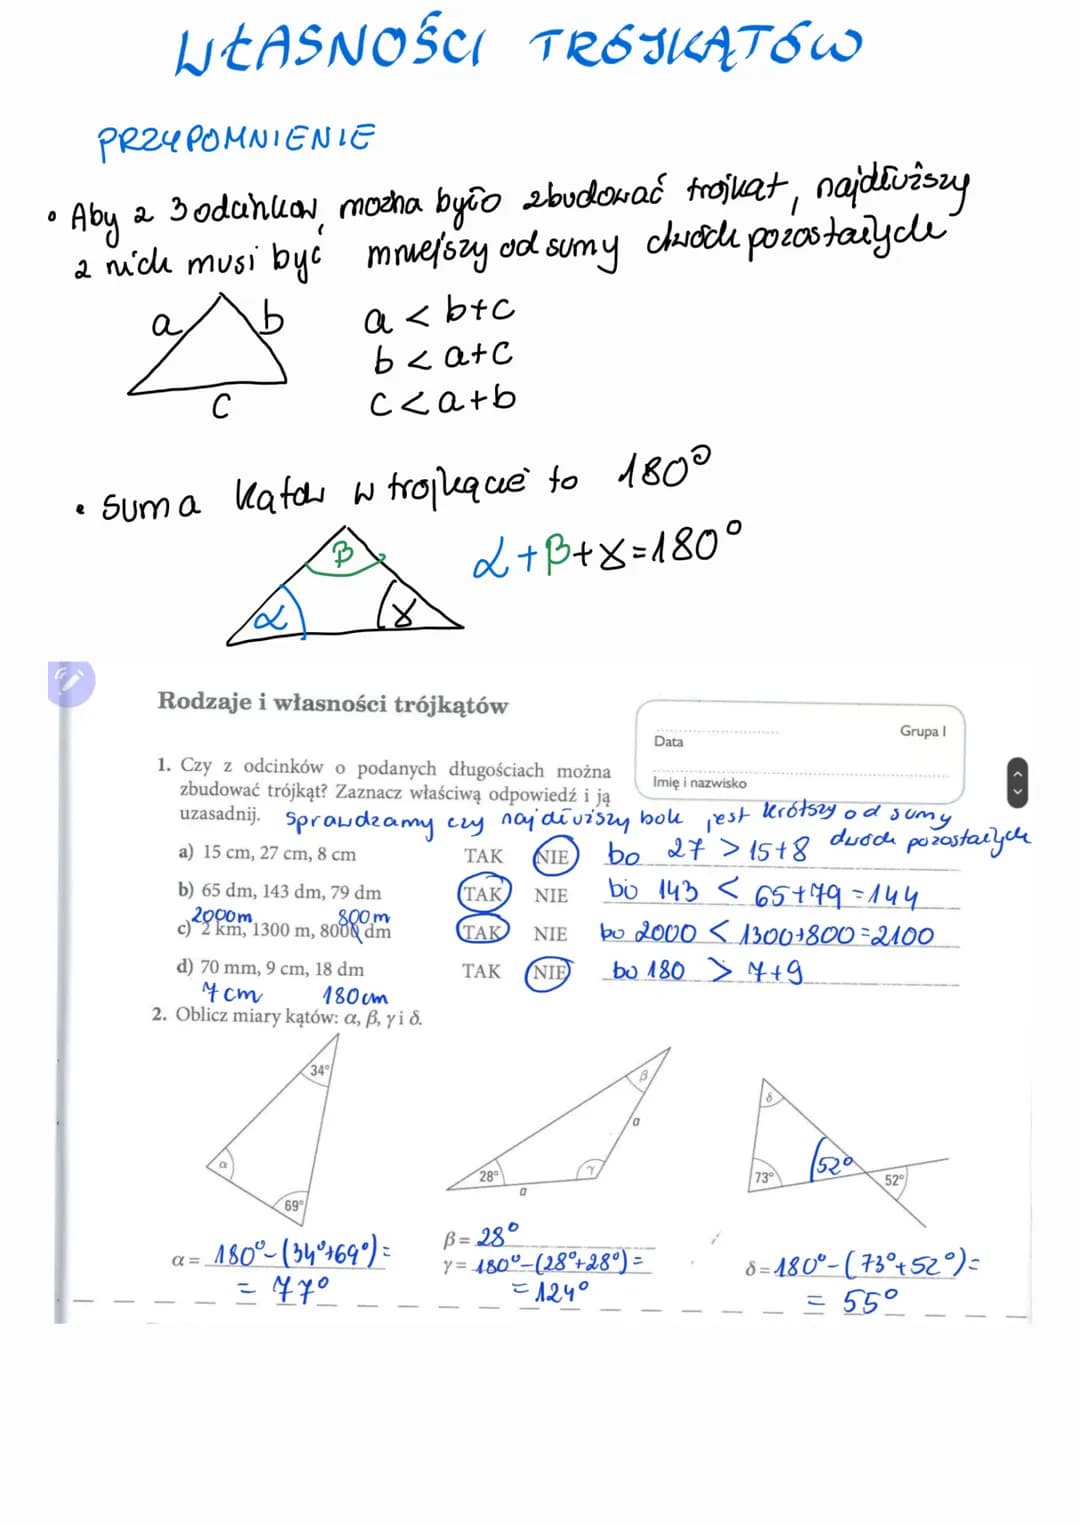 WŁASNOŚCI TRÓJKĄTÓW
PRZYPOMNIENIE
• Aby z 3 odcinkow, można było zbudować trojkąt, najdłuższy
z nich musi być mniejszy od sumy dwóch pozostałych
a b
c
a < b+c
b < a+c
c < a+b
• Suma kątów w trojkącie to 180°
α β γ
α+β+γ=180°
Rodzaje i własności trójkątów
Grupa I
Data
Imię i nazwisko
1. Czy z odcinków o podanych długościach można
zbudować trójkąt? Zaznacz właściwą odpowiedź i ją
uzasadnij. Sprawdzamy czy najdłuższy bok jest krótszy od sumy
dwóch pozostałych
a) 15 cm, 27 cm, 8 cm TAK NIE bo 27 > 15+8
b) 65 dm, 143 dm, 79 dm TAK NIE bo 143 < 65+79 = 144
2000m 800m
c) 2 km, 1300 m, 8000 dm TAK NIE bo 2000 < 1300+800=2100
d) 70 mm, 9 cm, 18 dm TAK NIE bo 180 > 7+9
7 cm 180 cm
2. Oblicz miary kątów: α, β, γ i δ.
34° α 69°
β a 28° γ a
δ 73° 52° 52°
α = 180°-(34°+69°)=
= 77°
β = 28°
γ = 180°-(28°+28°)=
= 124°
δ = 180°-(73°+52°)=
= 55°